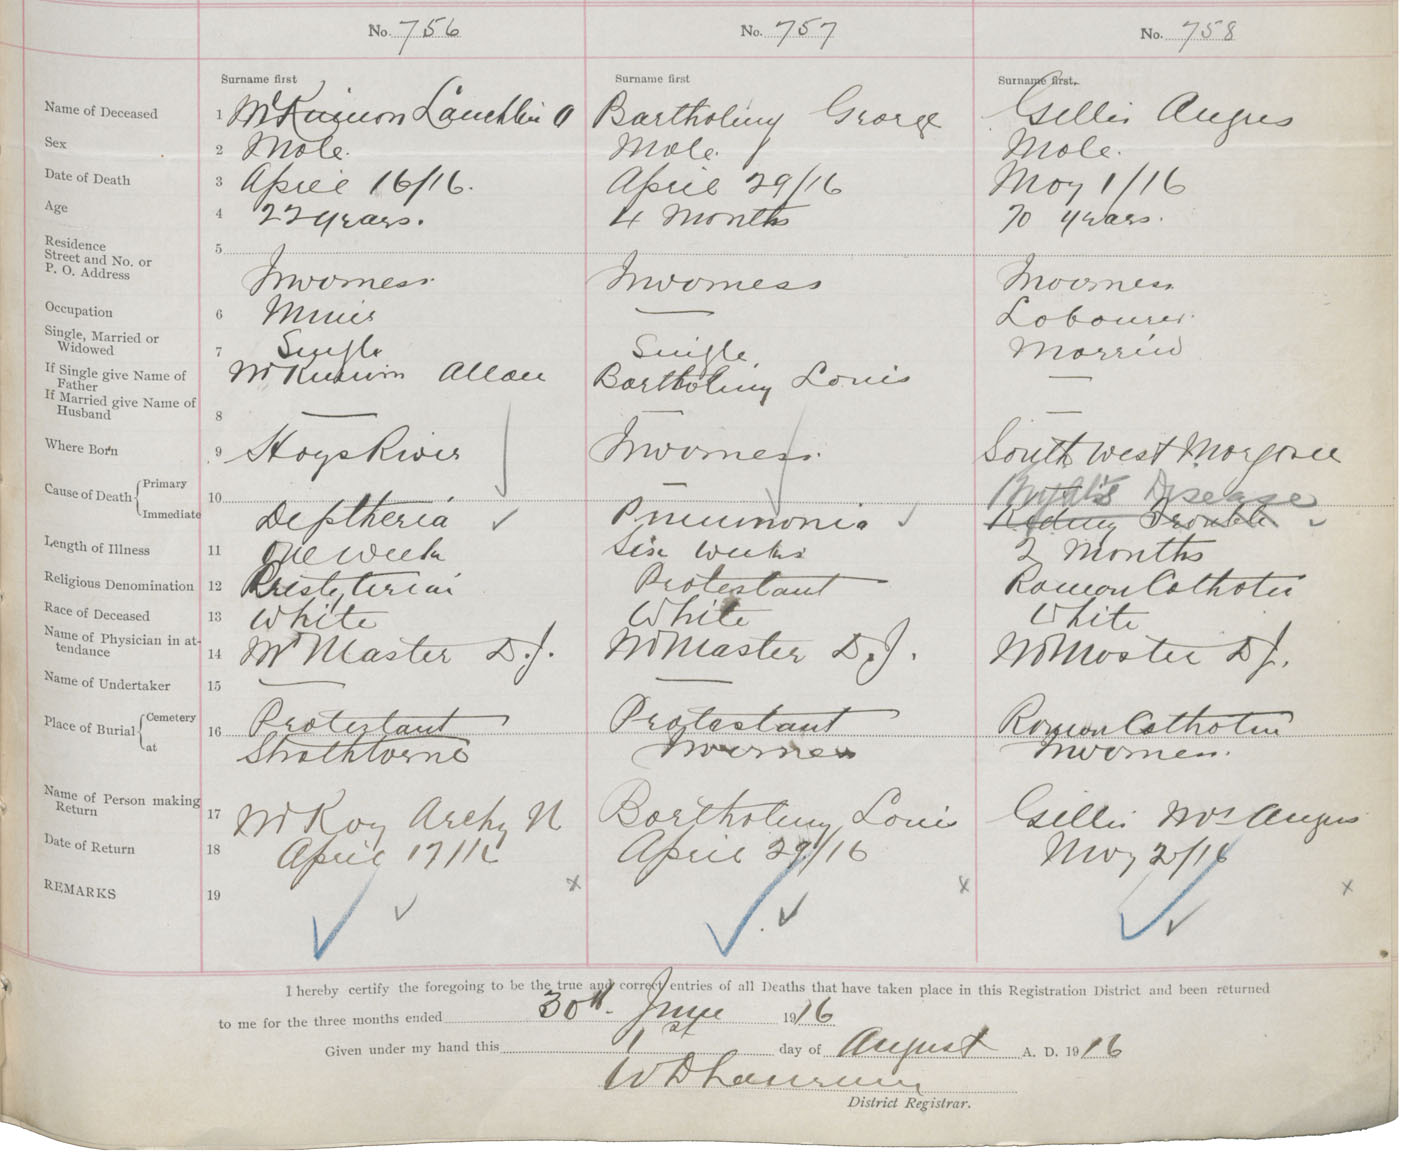 No. 756 No. 757 No. 758
Surname first Surname first Surname first.
Name of Deceased 1 McKinnon Lauchlin A Bartholmy George Gillis Angus
Sex 2 Male. Male. Male.
Date of Death 3 April 16/16. April 29/16 May 1/16
Age 4 22 years. 4 Months 70 years.
Residence
Street and No. or
P. O. Address 5 Inverness Inverness Inverness
Occupation 6 Miner — Labourer
Single, Married or
Widowed 7 Single Single Married
If Single give Name of
Father McKinnon Allan Bartholmy Louis —
If Married give Name of
Husband 8 — — —
Where Born 9 Hays River Inverness South West Margaree
Cause of Death Primary 10 Bright's Disease
Immediate Deptheria Pneumonia Kidney Trouble
Length of Illness 11 One week Six weeks 2 Months
Religious Denomination 12 Presbyterian Protestant Roman Catholic
Race of Deceased 13 White White White
Name of Physician in at-
tendance 14 McMaster D.J. McMaster D.J. McMaster D J.
Name of Undertaker 15 — —
Place of Burial Cemetery 16 Protestant Protestant Roman Catholic
at Strathlorne Inverness Inverness.
Name of Person making
Return 17 McKay Archy N Bartholmy Louis Gillis Mrs Angus
Date of Return 18 April 17/16 April 29/16 May 2/16
REMARKS 19 x x x
I hereby certify the foregoing to be the true and correct entries of all Deaths that have taken place in this Registration District and been returned
to me for the three months ended 30th. June 1916
Given under my hand this 1st day of August A. D. 1916
W D
District Registrar.